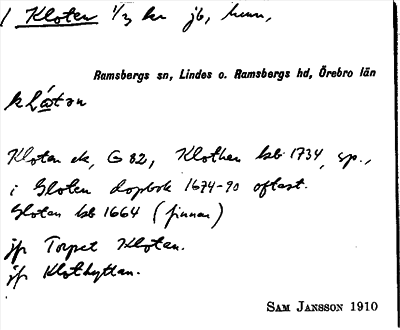 / Kloten 1/3 kr jb, hemm,
Ramsbergs sn, Lindes o. Ramsbergs hd, Örebro län
Kloten ek, G 82, Klothen hsb 1734, sp.,
i Gloten dopbok 1674-90 oftast.
Gloten hsb 1664 (finnar)
jfr Torpet Kloten.
jfr Klothyttan.
SAM JANSSON 1910